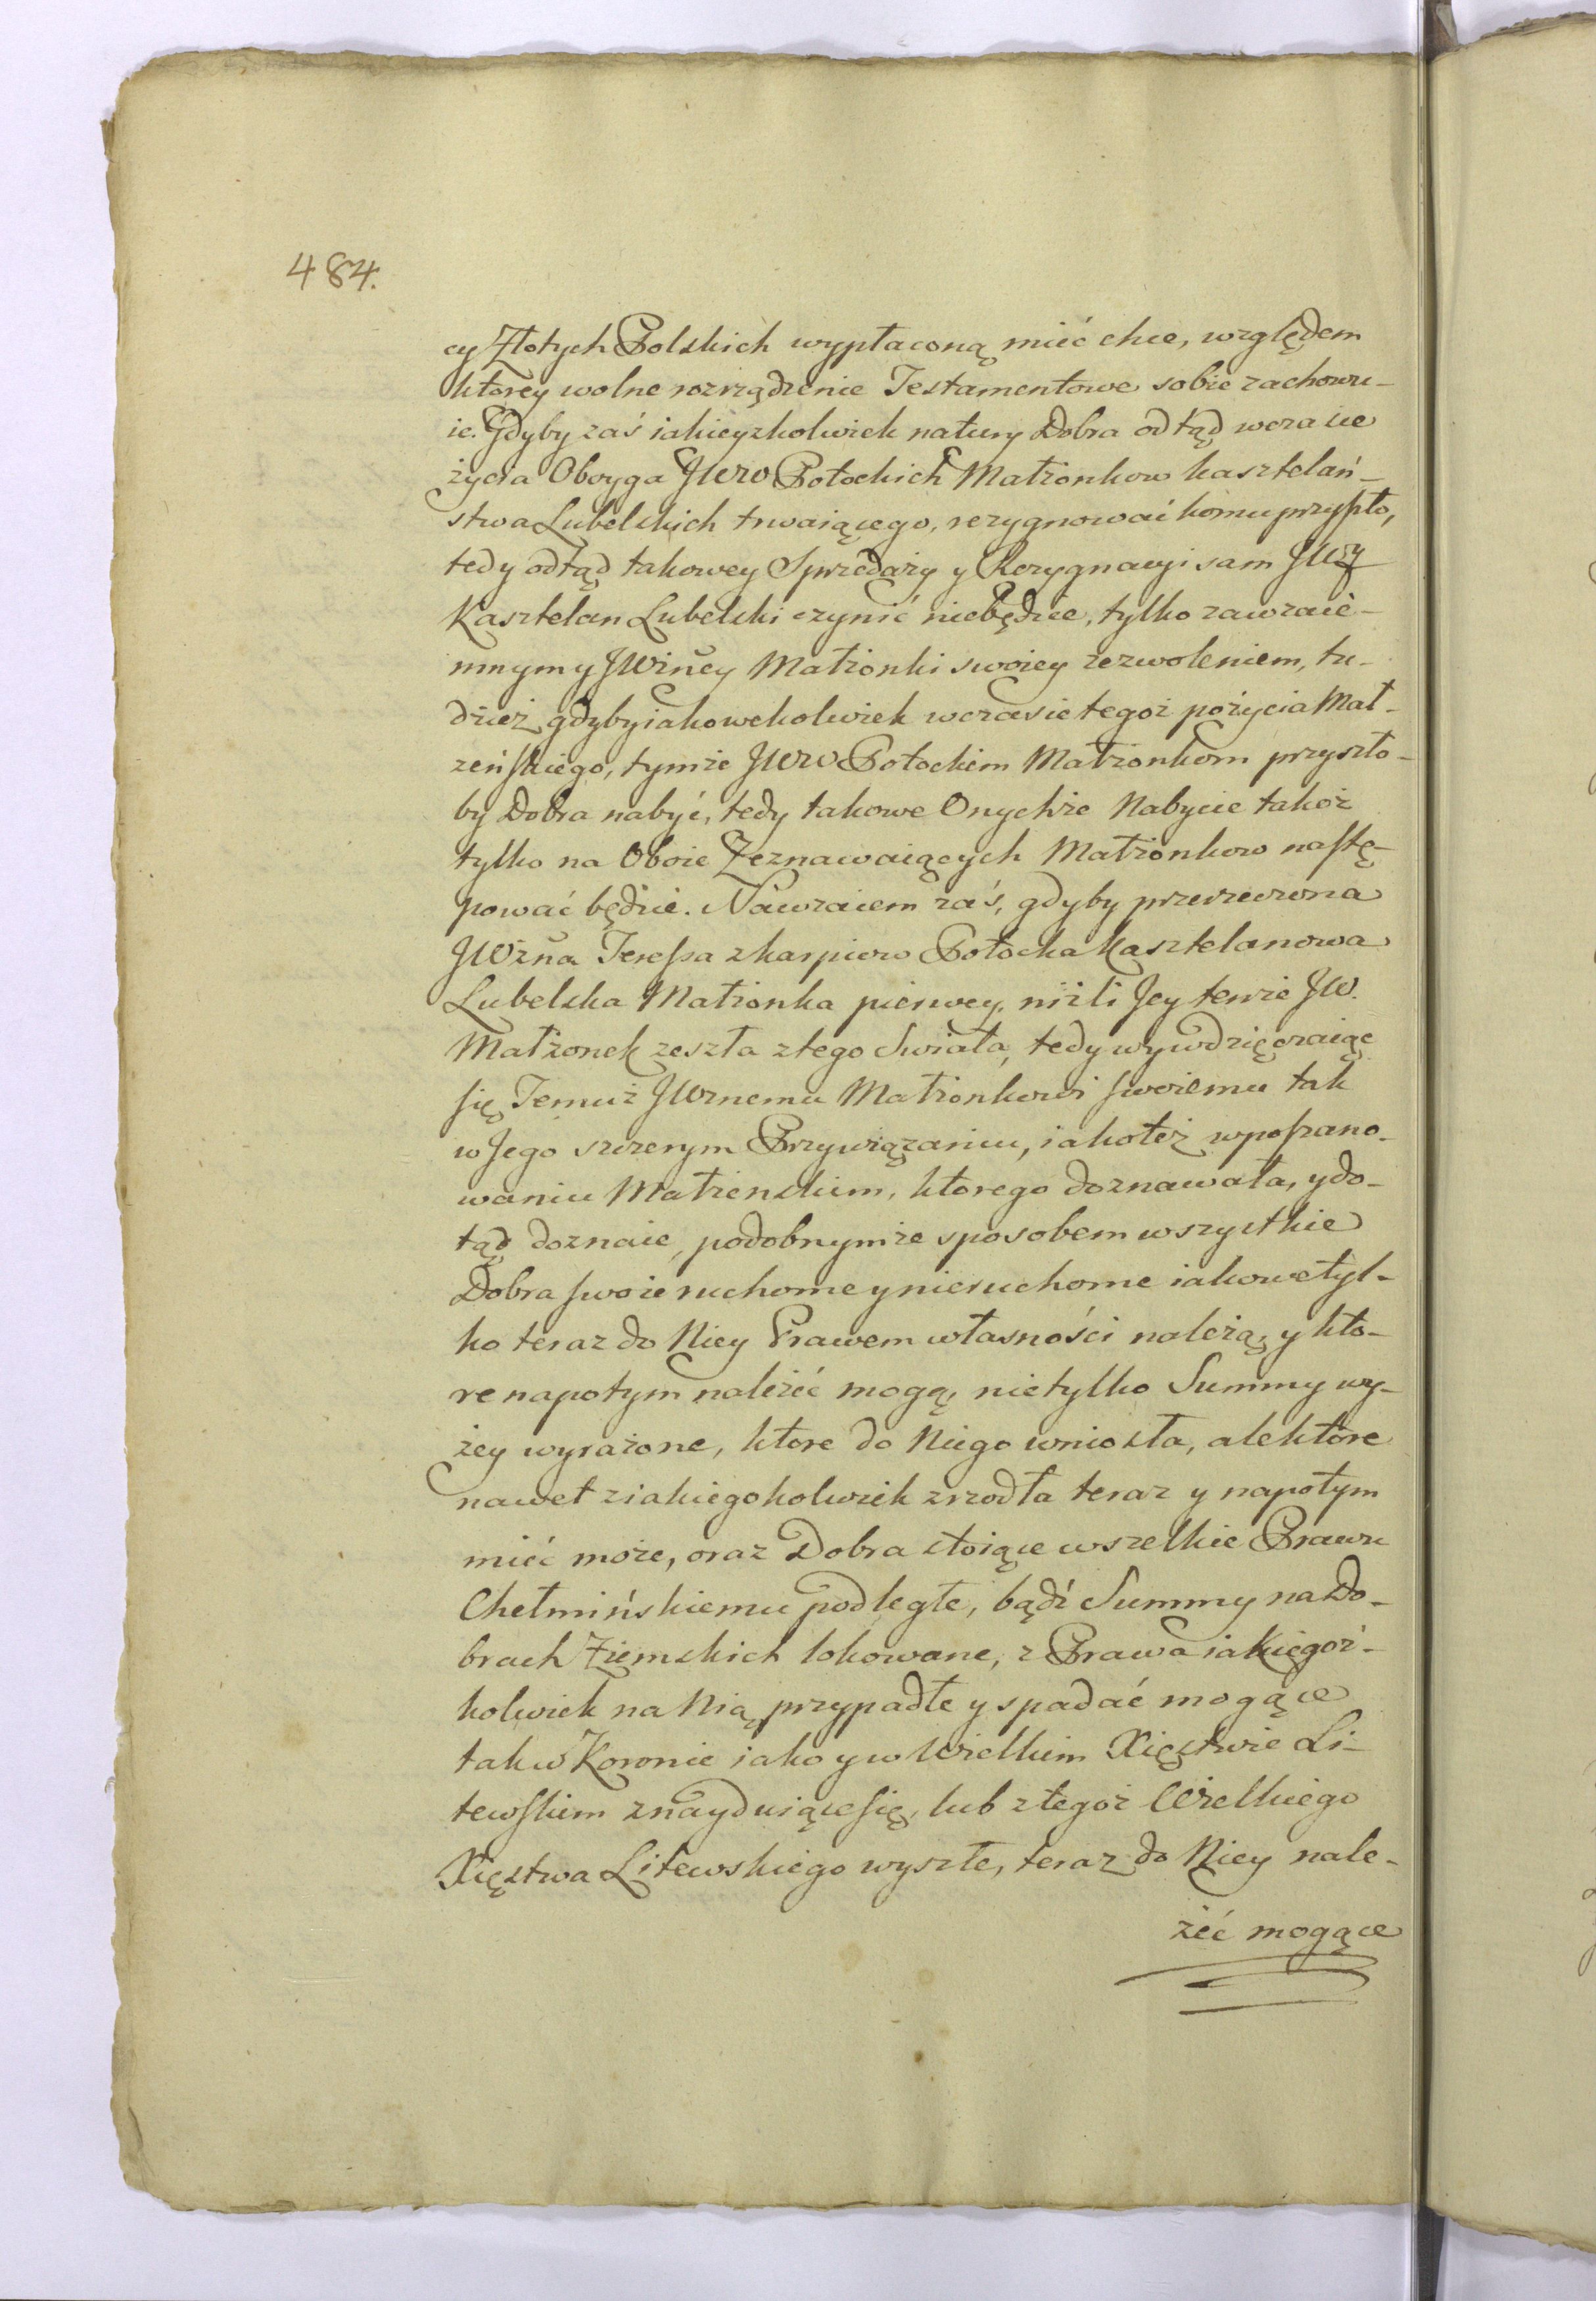 484.
cy Złotych Polskich wypłaconą mieć chce, względem
ktorey wolne rozrządzenie Testamentowe sobie zachowu-
ie. Gdyby zaś iakieyzkolwiek natury Dobra odtąd wczasie
życia Oboyga JWW Potockich Małżonkow kasztelań-
stwa Lubelskich trwaiącego, rezygnować komu przyszło,
tedy odtąd takowey Sprzedaży y Rezygnacyi sam JWy
Kasztelan Lubelski czynić niebędzie, tylko zawzaie-
mnym y JWney Małżonki swoiey zezwoleniem, tu-
dzież gdyby iakowekolwiek wczasie tegoż pożycia Mał-
żeńskiego, tymże JWW Potockim Małżonkom przyszło-
by Dobra nabyć, tedy takowe Onychże Nabycie takoż
tylko na Oboie Zeznawaiących Małżonkow nastę-
pować będzie. Nawzaiem zaś, gdyby przerzeczona
JWżna Teressa zkarpiow Potocka Kasztelanowa
Lubelska Małżonka pierwey, niżli Jey tenże JW.
Małżonek zeszła ztego Swiata, tedy wywdzięczaiąc
się Temuż JWżnemu Małżonkowi swoiemu tak
w Jego szczerym Przywiązaniu, iakoteż wposzano-
waniu Małżenskim, ktorego doznawała, y do-
tąd doznaie, podobnymże sposobem wszystkie
Dobra swoie ruchome y nieruchome iakowe tyl-
ko teraz do Niey Prawem własności należą, y kto-
re napotym należeć mogą, nietylko Summy wy-
żey wyrażone, ktore do Niego wniosła, ale ktore
nawet ziakiegokolwiek zrzodła teraz y napotym
mieć może, oraz Dobra stoiące wszelkie Prawu
Chełmińskiemu podległe, bądź Summy na Do-
brach Ziemskich lokowane, z Prawa iakiegoż-
kolwiek na Nią przypadłe y spadać mogące
tak w Koronie iako y w Wielkim Xięstwie Li-
tewskim znayduiące się, lub ztegoż Wielkiego
Xięstwa Litewskiego wyszłe, teraz do Niey nale-
żeć mogące